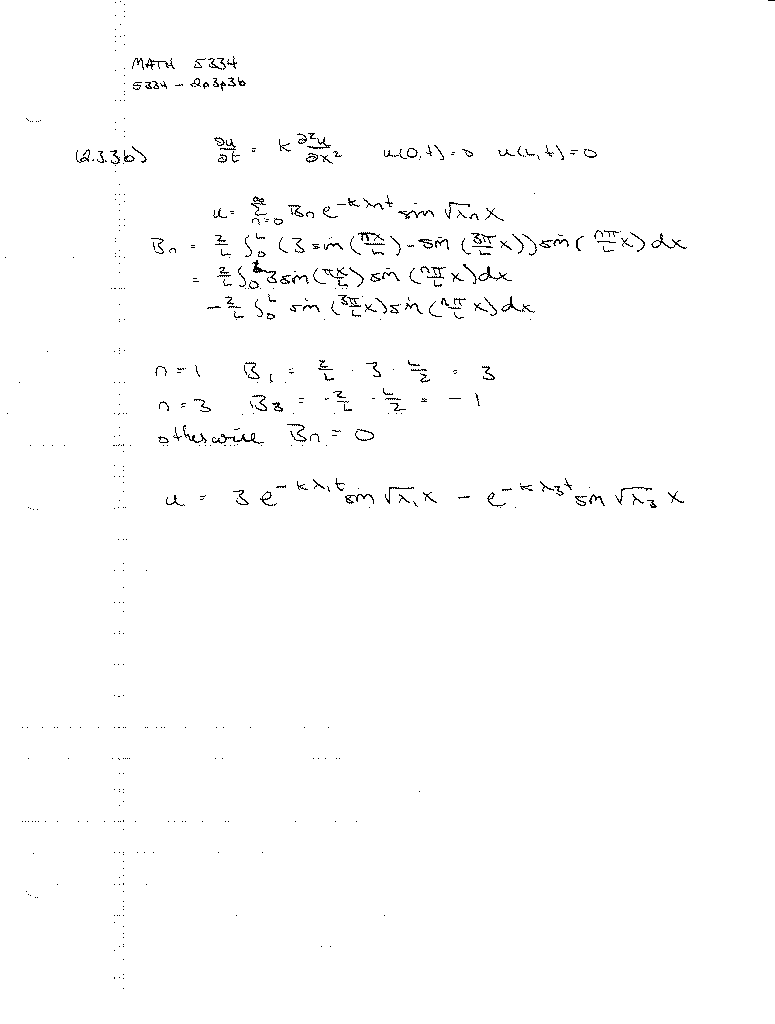 MATH 5334
5334 - 2p3p3b
(2.3.3b) ∂u/∂t = k ∂²u/∂x² u(0,t)=0 u(L,t)=0
u = Σ_{n=0}^{∞} B_n e^{-kλ_n t} sin √λ_n x
B_n = 2/L ∫_0^L (3 sin(πx/L) - sin(3π/L x)) sin(nπ/L x) dx
= 2/L ∫_0^L 3 sin(πx/L) sin(nπ/L x) dx
- 2/L ∫_0^L sin(3π/L x) sin(nπ/L x) dx
n = 1 B_1 = 2/L · 3 · L/2 = 3
n = 3 B_3 = -2/L · L/2 = -1
otherwise B_n = 0
u = 3 e^{-kλ_1 t} sin √λ_1 x - e^{-kλ_3 t} sin √λ_3 x